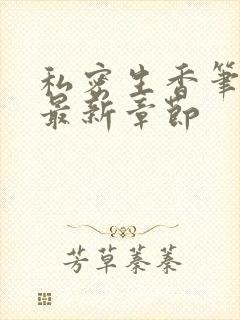 私密生香筆
最新章節
芳草萋萋